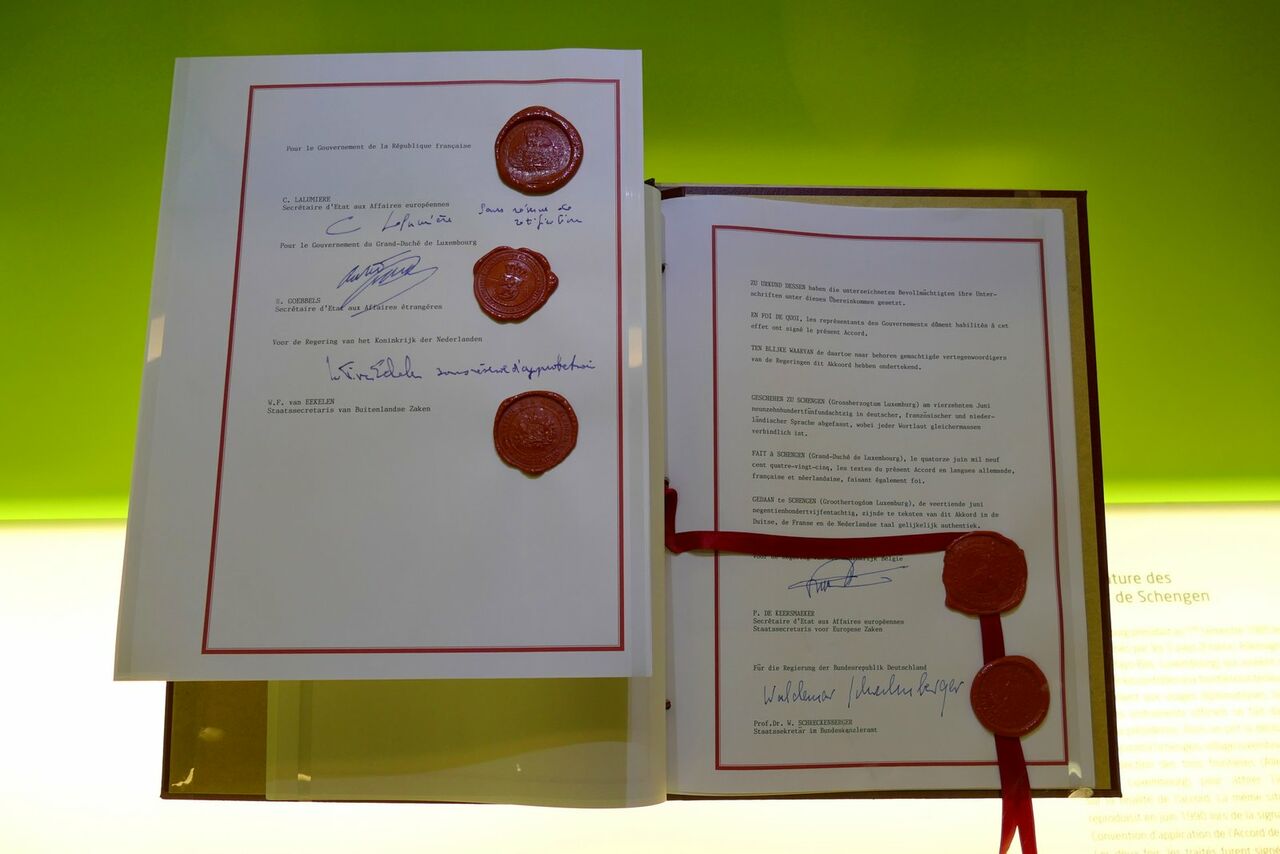 Pour le Gouvernement de la République française
C. LALUMIERE
Secrétaire d'Etat aux Affaires européennes
C Lalumière
sous réserve de
Pour le Gouvernement du Grand-Duché de Luxembourg
R. GOEBBELS
Secrétaire d'Etat aux Affaires étrangères
Voor de Regering van het Koninkrijk der Nederlanden
sous réserve d'approbation
W.F. van EEKELEN
Staatssecretaris van Buitenlandse Zaken
ZU URKUND DESSEN haben die unterzeichneten Bevollmächtigten ihre Unter-
schriften unter dieses Übereinkommen gesetzt.
EN FOI DE QUOI, les représentants des Gouvernements dûment habilités à cet
effet ont signé le présent Accord.
TEN BLIJKE WAARVAN de daartoe naar behoren gemachtigde vertegenwoordigers
van de Regeringen dit Akkoord hebben ondertekend.
GESCHEHEN ZU SCHENGEN (Grossherzogtum Luxemburg) am vierzehnten Juni
neunzehnhundertfünfundachtzig in deutscher, französischer und nieder-
ländischer Sprache abgefasst, wobei jeder Wortlaut gleichermassen
verbindlich ist.
FAIT à SCHENGEN (Grand-Duché de Luxembourg), le quatorze juin mil neuf
cent quatre-vingt-cinq, les textes du présent Accord en langues allemande,
française et néerlandaise, faisant également foi.
GEDAAN te SCHENGEN (Groothertogdom Luxemburg), de veertiende juni
negentienhondertvijfentachtig, zijnde te teksten van dit Akkord in de
Duitse, de Franse en de Nederlandse taal gelijkelijk authentiek.
België
P. DE KEERSMAEKER
Secrétaire d'Etat aux Affaires européennes
Staatssecretaris voor Europese Zaken
Für die Regierung der Bundesrepublik Deutschland
Waldemar Schreckenberger
Prof.Dr. W. SCHRECKENBERGER
Staatssekretär im Bundeskanzleramt
ature des
de Schengen